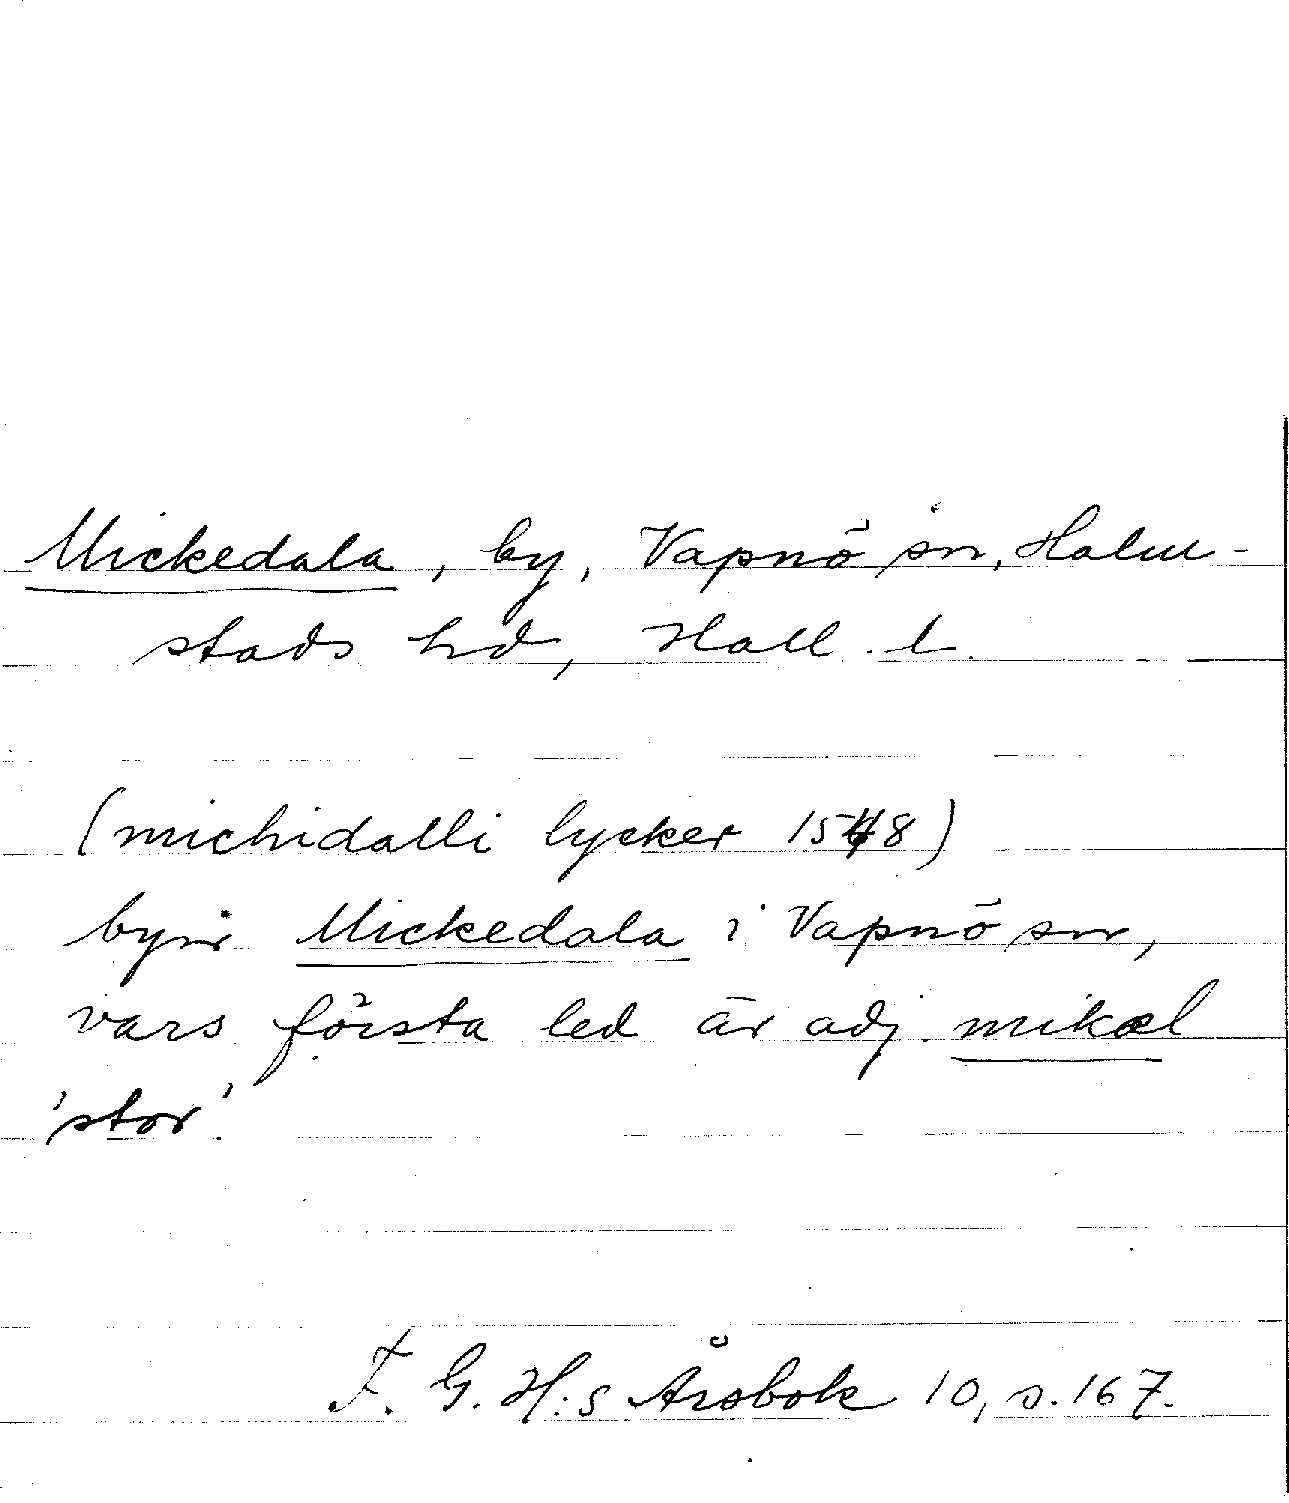 Mickedala, by, Vapnö sn, Halm-
stads hd, Hall. l.
(michidalli lycker 1548)
byn Mickedala i Vapnö sn,
vars första led är adj. mikæl
'stor'.
F. G. H:s Årsbok 10, s. 167.